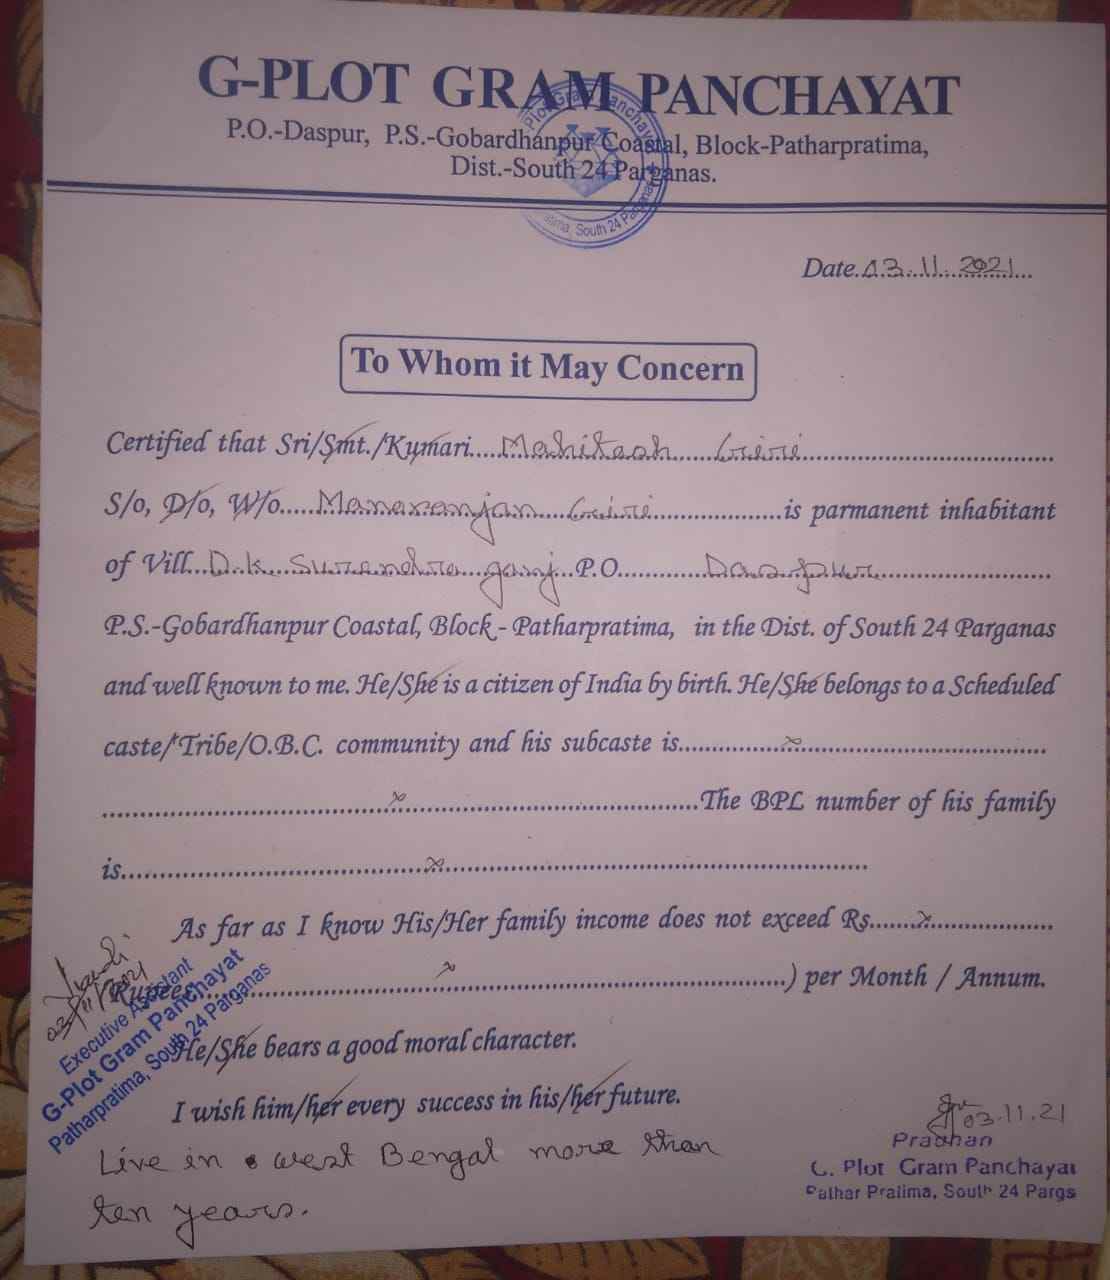 G-PLOT GRAM PANCHAYAT
P.O.-Daspur, P.S.-Gobardhanpur Coastal, Block-Patharpratima,
Dist.-South 24 Parganas.
Plot Gram Panchayat
South 24 Parganas
Date. 03.11.2021
To Whom it May Concern
Certified that Sri/Smt./Kumari....Mahitosh Giri
S/o, D/o, W/o.....Manaranjan Giri is parmanent inhabitant
of Vill..D.k. Surendra ganj...P.O. Daspur
P.S.-Gobardhanpur Coastal, Block - Patharpratima, in the Dist. of South 24 Parganas
and well known to me. He/She is a citizen of India by birth. He/She belongs to a Scheduled
caste/Tribe/O.B.C. community and his subcaste is.......x.......
.......x.......The BPL number of his family
is.......x.......
As far as I know His/Her family income does not exceed Rs.....x.....
Rupees.......x.......) per Month / Annum.
He/She bears a good moral character.
I wish him/her every success in his/her future.
Live in west Bengal more than
ten years.
Executive Assistant
G-Plot Gram Panchayat
Patharpratima, South 24 Parganas
03.11.21
Pradhan
G. Plot Gram Panchayat
Pathar Pratima, South 24 Pargs